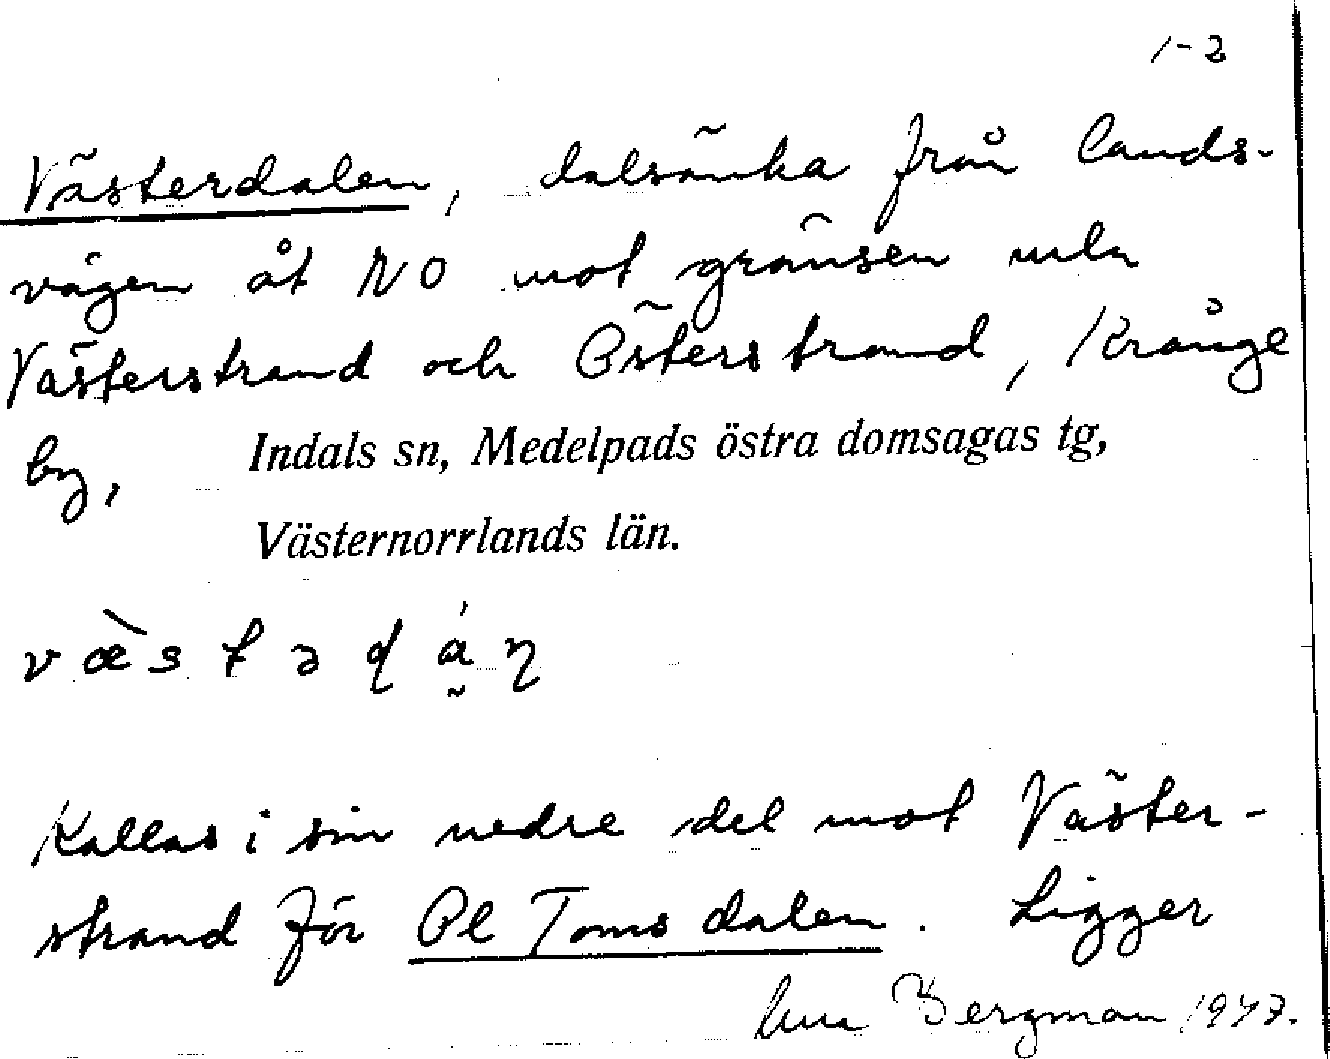 1-2
Västerdalen, dalsänka från lands-
vägen åt NO mot gränsen mla
Västerstrand och Österstrand, Krånge
by, Indals sn, Medelpads östra domsagas tg,
Västernorrlands län.
Kallas i sin nedre del mot Väster-
strand för Ol Toms dalen. Ligger
Bergman 1943.